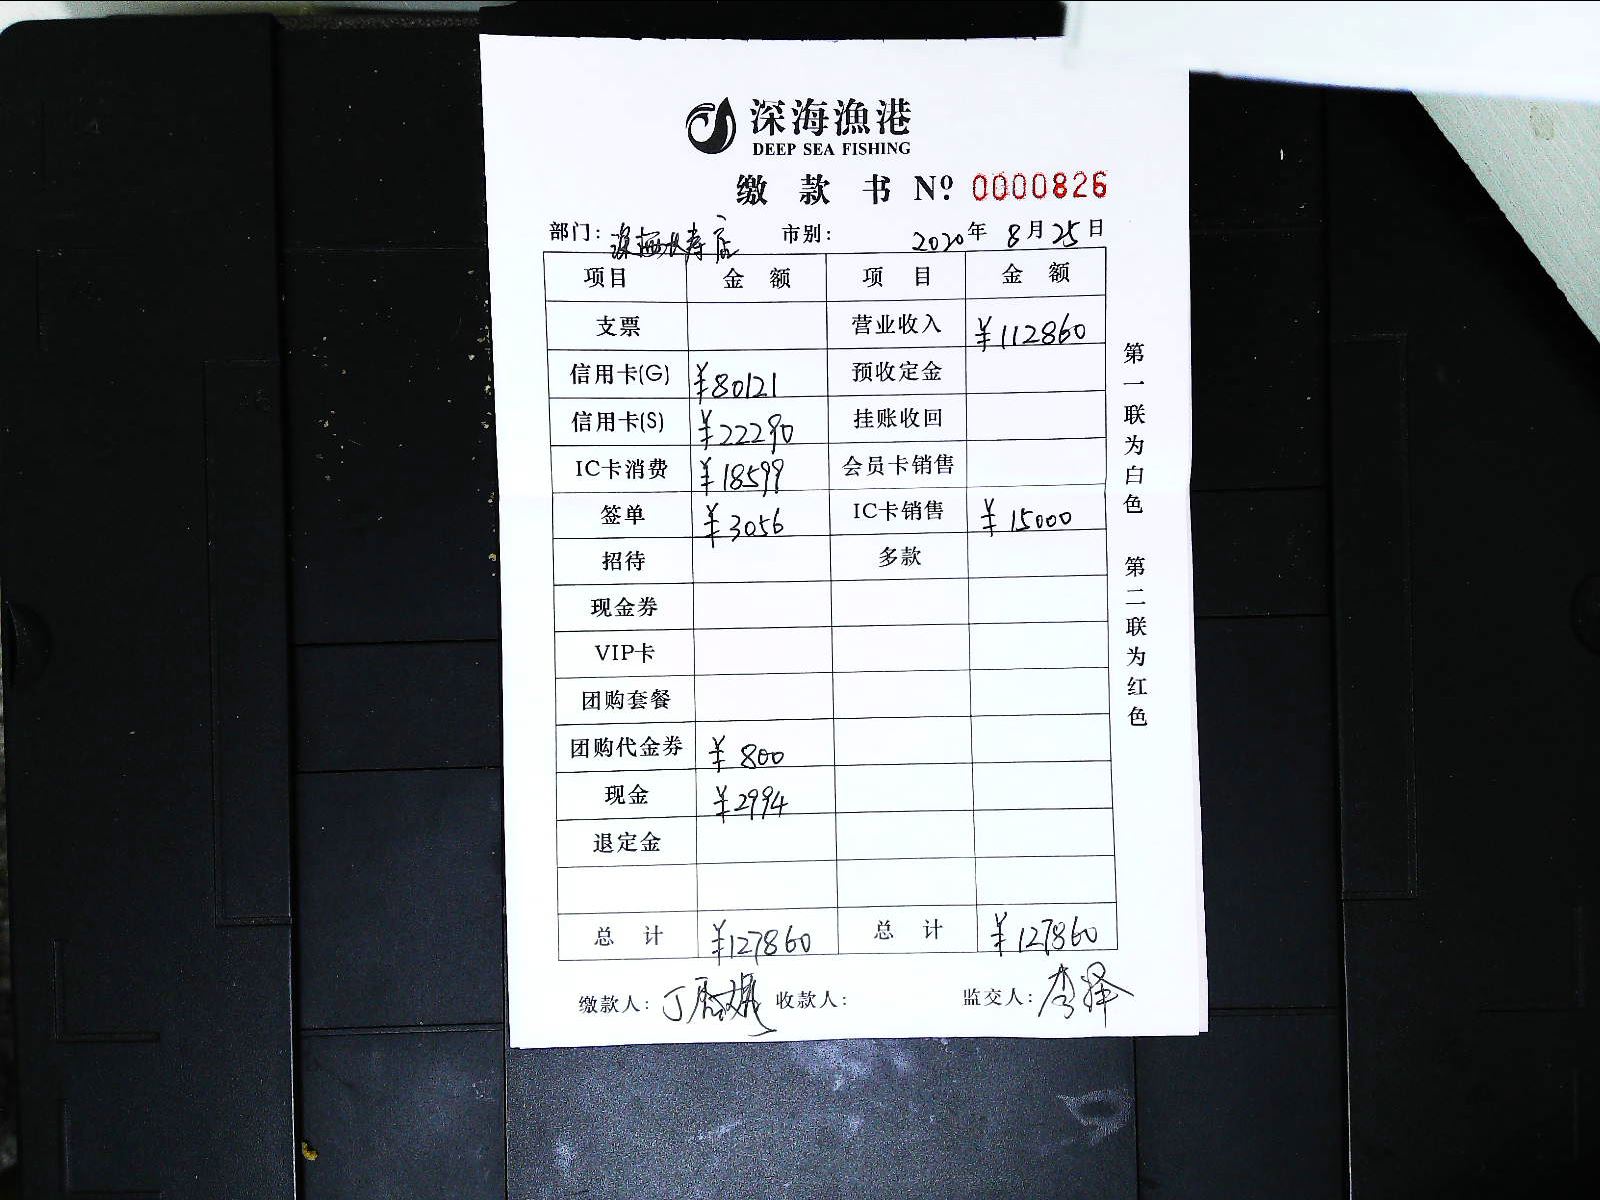 深海漁港
DEEP SEA FISHING
缴款书 Nº 0000826
部门: 长寿店 市别: 2020年 8月25日
项目 金额 项目 金额
支票 营业收入 ¥112860
信用卡(G) ¥80121 预收定金
信用卡(S) ¥22290 挂账收回
IC卡消费 ¥18599 会员卡销售
签单 ¥3056 IC卡销售 ¥15000
招待 多款
现金券
VIP卡
团购套餐
团购代金券 ¥800
现金 ¥2994
退定金
总计 ¥127860 总计 ¥127860
缴款人: 丁 收款人: 监交人: 李泽
第一联为白色 第二联为红色